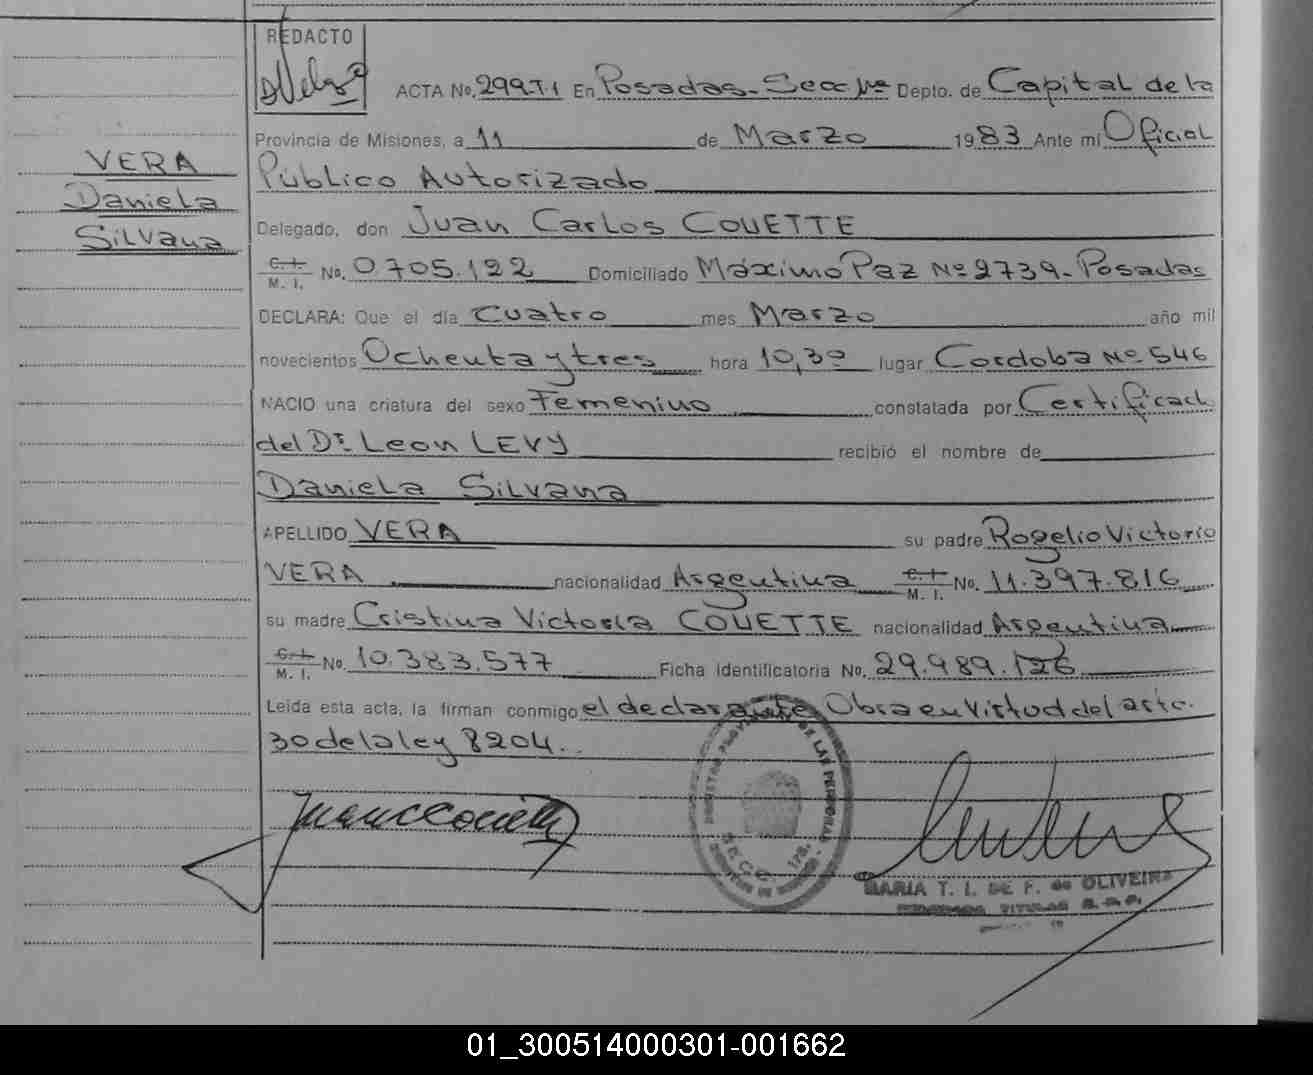 REDACTO
ACTA No. 299 T.1 En Posadas - Secc 1ra Depto. de Capital de la
Provincia de Misiones, a 11 de Marzo 1983 Ante mi Oficial
Público Autorizado
VERA
Daniela
Silvana
Delegado, don Juan Carlos COUETTE
C. I. M. I. No. 0.705.122 Domiciliado Máximo Paz Nº 2739 - Posadas
DECLARA: Que el día Cuatro mes Marzo año mil
novecientos Ochenta y tres hora 10,30 lugar Cordoba Nº 546
NACIO una criatura del sexo Femenino constatada por Certificado
del Dr. Leon LEVY recibió el nombre de
Daniela Silvana
APELLIDO VERA su padre Rogelio Victorio
VERA nacionalidad Argentina C. I. M. I. No. 11.397.816
su madre Cristina Victoria COUETTE nacionalidad Argentina
C. I. M. I. No. 10.383.577 Ficha Identificatoria No. 29.989.126
Leida esta acta, la firman conmigo el declarante Obra en Virtud del arto.
30 de la ley 8204..
MARIA T. I. DE F. de OLIVEIRA
01_300514000301-001662